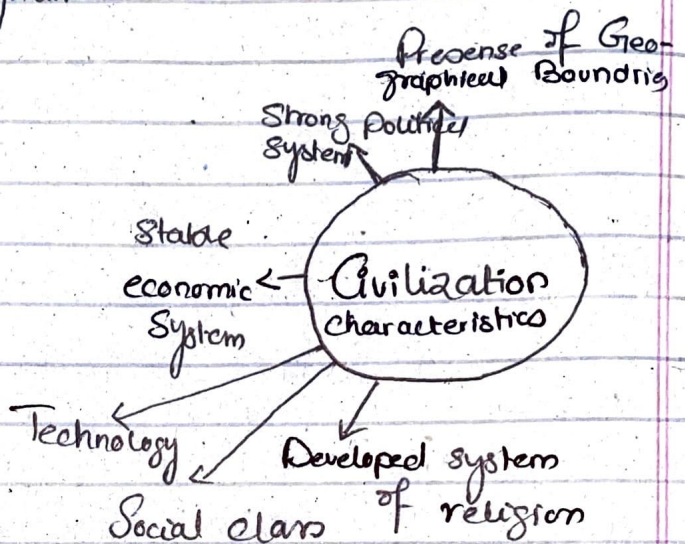 Presense of Geo-
graphical Boundris
Strong political
System
Stable
economic
System
Civilization
characteristics
Technology
Developed system
of religion
Social class